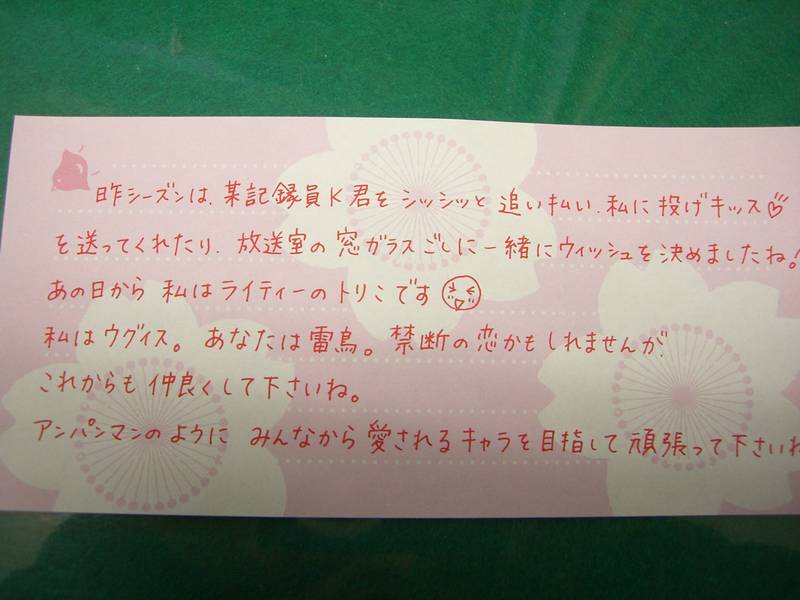 昨シーズンは、某記録員K君をシッシッと追い払い、私に投げキッス♡
を送ってくれたり、放送室の窓ガラスごしに一緒にウィッシュを決めましたね!
あの日から 私はライティーのトリこです
私はウグイス。あなたは雷鳥。禁断の恋かもしれませんが、
これからも仲良くして下さいね。
アンパンマンのように みんなから愛されるキャラを目指して頑張って下さいね